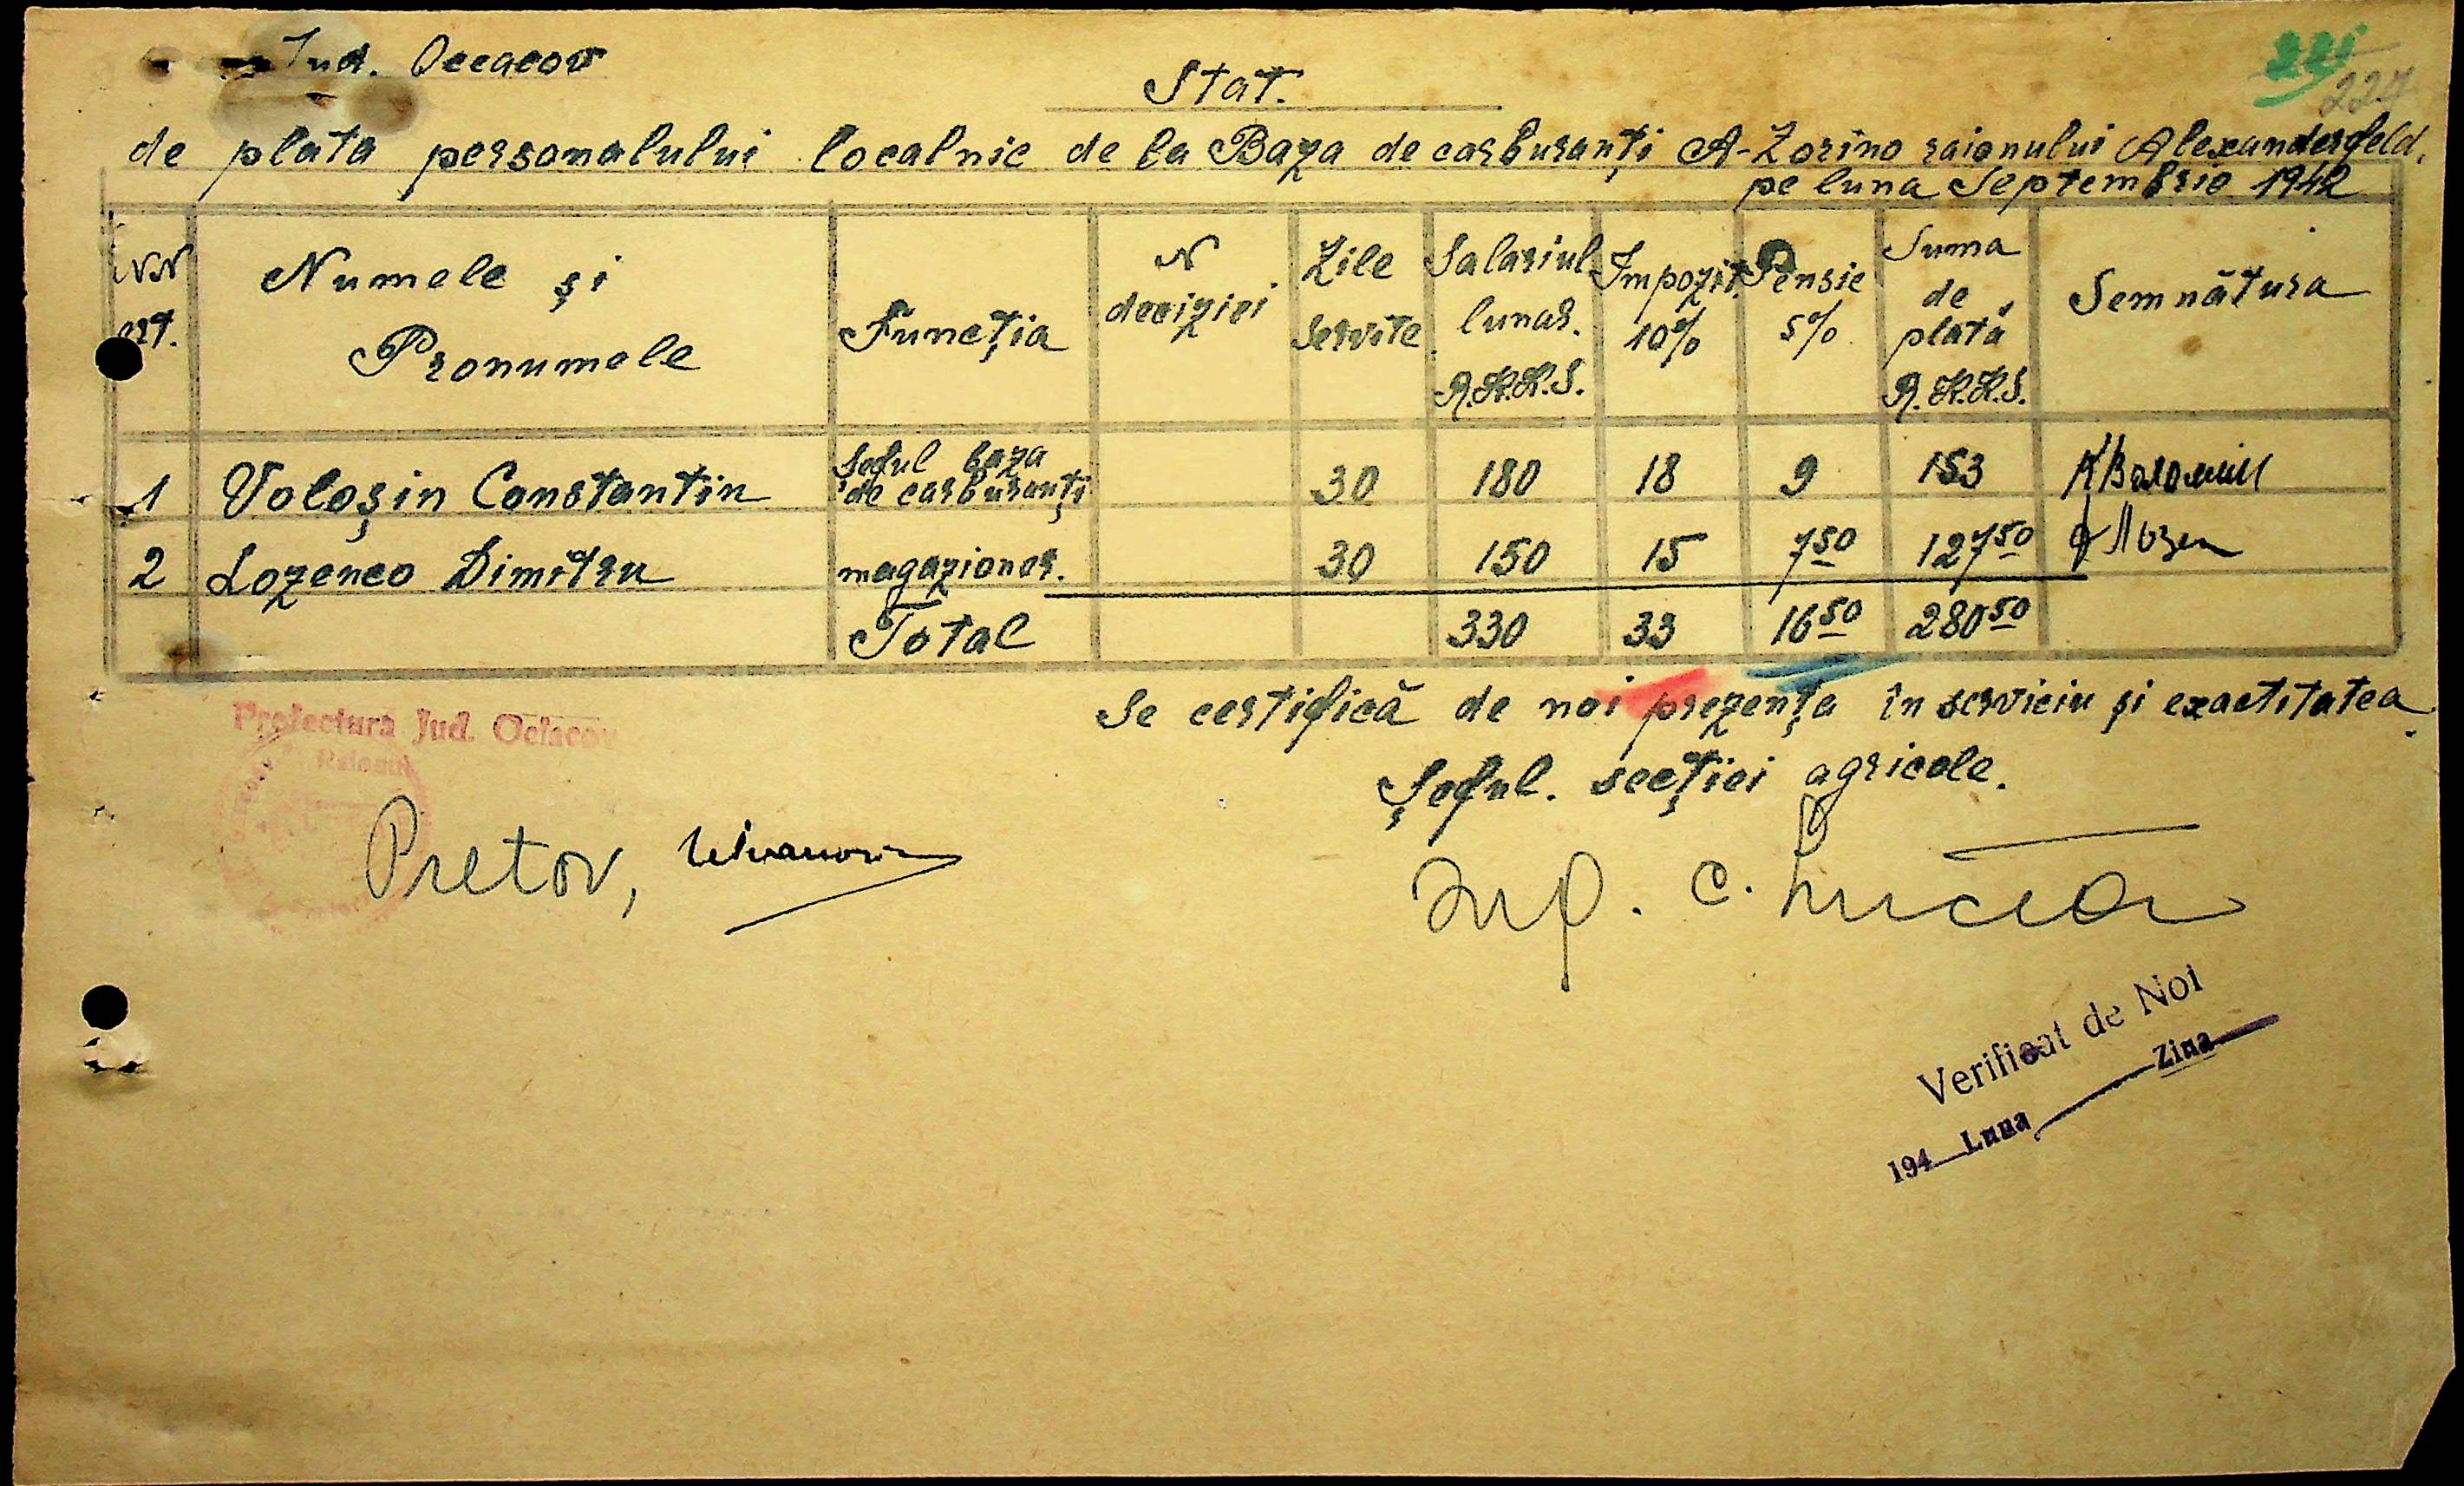 Jud. Oceacov
Stat.
227
de plata personalului localnic de la Baza de carburanți A-Zorino raionului Alexanderfeld,
pe luna Septembrie 1942
NN crt. Numele și Pronumele Funcția N deciziei Zile servite Salariul lunar. R.K.K.S. Impozit 10% Pensie 5% Suma de plată R.K.K.S. Semnătura
1 Voloșin Constantin Șeful baza de carburanți 30 180 18 9 153 К Волошин
2 Lozenco Dimitru magazioner. 30 150 15 7 50 127 50 Лозен
Total 330 33 16 50 280 50
Se certifică de noi prezența în serviciu și exactitatea.
Prefectura Jud. Oceacov
Șeful. secției agricole.
Pretor,
C.
Verificat de Noi
194 Luna Ziua